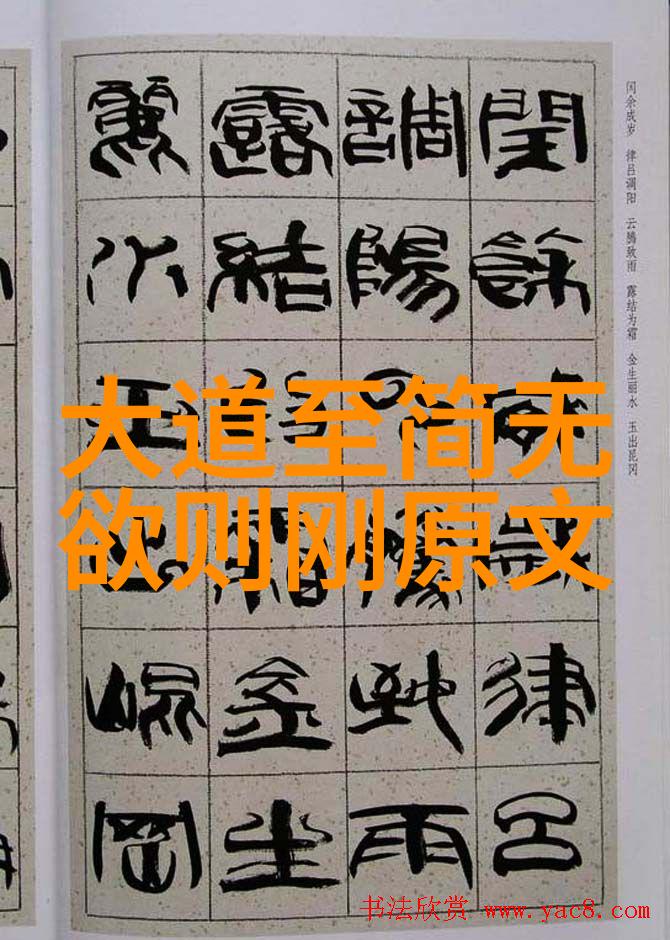 闰余成岁 律吕调阳 云腾致雨 露结为霜 金生丽水 玉出昆冈
閏餘成歲律呂
調陽云騰致雨
露結為霜金生
麗水玉出崐岡
大道至简无
欲则刚原文
书法欣赏 www.yac8.com